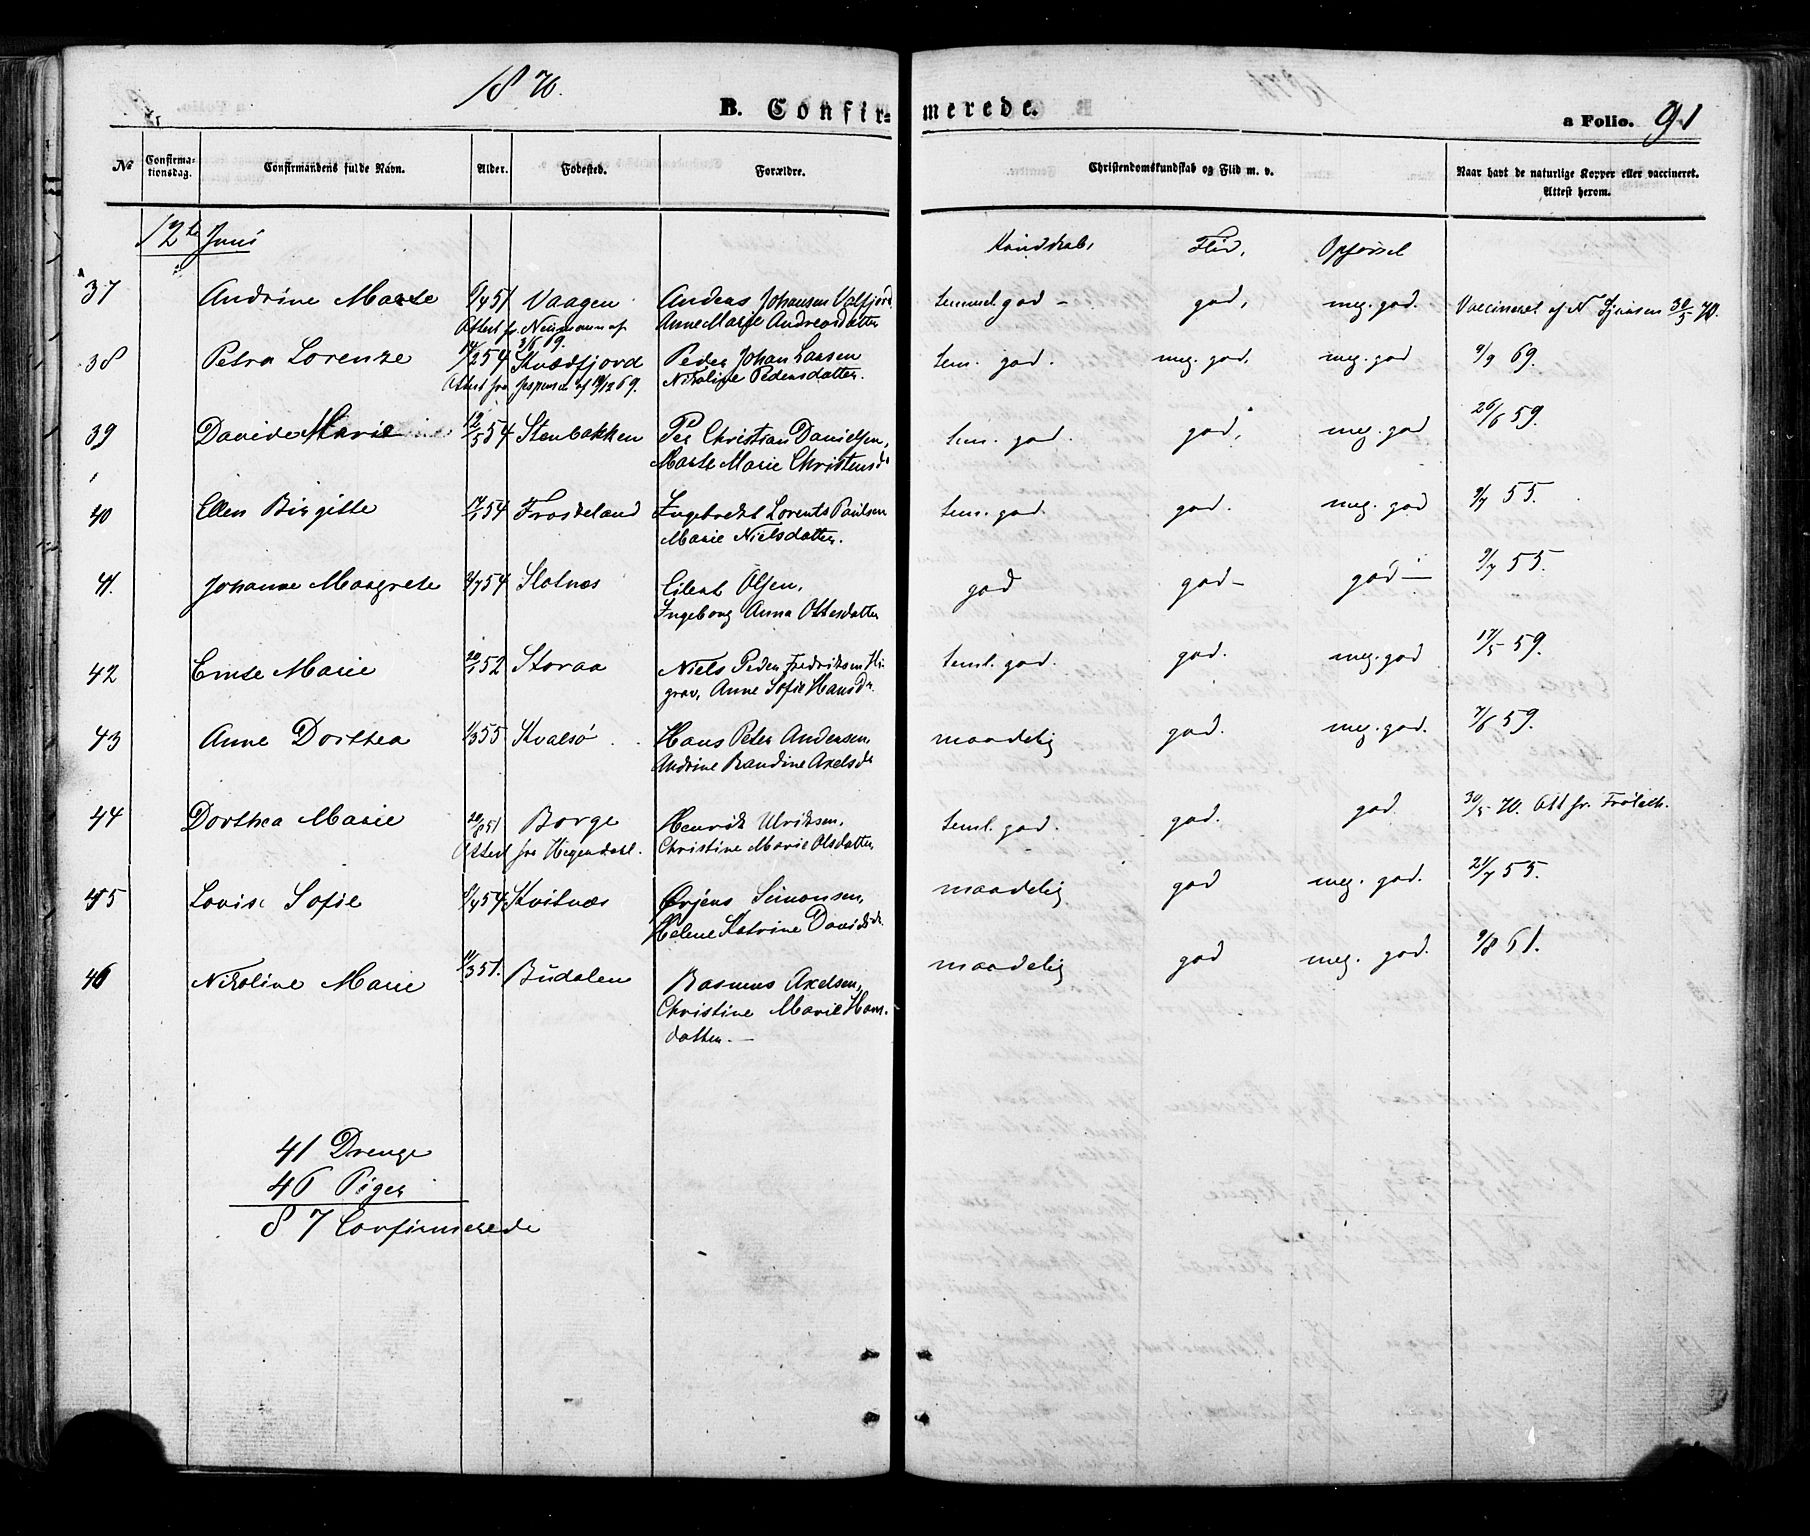 1870.
B. Confirmerede.
a Folio. 91
No Confirmationsdag. Confirmandens fulde Navn. Alder. Fødested. Forældre. Christendomskundskab og Flid m. v. Naar havt de naturlige Kopper eller vaccineret. Attest herom.
12te Juni Kundskab, Flid, Opførsel
37 Andrine Marte 9/4 51 Vaagen Anders Johansen Valfjord temmel. god - god, meg. god. Vaccineret af N 30/5 70.
Attest fr. Neumann af 3/6 69. Anne Marie Andreasdatter
38 Petra Lorenze 14/2 54 Kvædfjord Peder Johan Larsen tem. god. meg. god, meg. god 9/9 69.
Attest fra Jespersen af 19/12 69. Nikoline Pedersdatter.
39 Davide Marie 12/5 54 Stenbakken Per Christian Danielsen, tem. god. god, meg. god 26/6 59.
Marte Marie Christensd.
40 Ellen Birgitte 54 Froskeland Ingebrekt Lorents Paulsen tem. god. god. meg. god 9/7 55.
Marie Nielsdatter.
41. Johanne Margrete 9/7 54 Slotnæs Eilert Olsen, god god- god- 9/7 55.
Ingeborg Anna Ottesdatter
42 Emte Marie 52 Storaa Niels Peder Fredriksen Hi- teml. god. god. meg. god 17/5 59.
grav, Anne Sofie Hansdr.
43 Anne Dorthea 1/3 55 Kvalsø Hans Peter Andersen maadelig god. meg. god. 7/6 59.
Andrine Randine Axelsdr
44 Dorthea Marie 20/8 51 Borge Henrik Ulriksen, teml. god. god. god. 30/5 70. Att fr.
Attest fra Hegendahl. Christine Marie Olsdatter
45 Lovise Sofie 8/4 54 Kvitnæs Ørjens Simonsen, maadelig god meg. god. 21/7 55.
Helene Katrine Davidsdr.
46 Nikoline Marie 11/3 51. Budalen Rasmus Axelsen, maadelig god meg. god. 9/8 61.
Christine Marie Hans-
datter. -
41 Drenge
46 Piger
87 Confirmerede